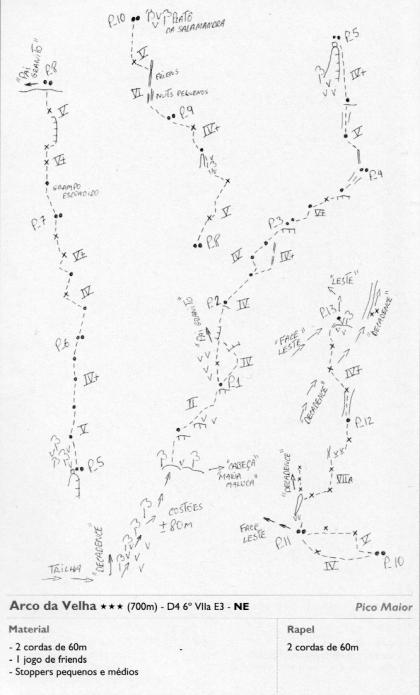 P.8
"PAI GRANITO"
V
VI
GRAMPO ESCONDIDO
P.7
VI
IV
P.6
IV+
V
P.5
P.10
PLATÔ
DA SALAMANDRA
V
FRIENDS
VI
NUTS PEQUENOS
P.9
IV+
V
P.8
P.5
IV+
V
P.4
P.3
VI
IV
IV+
P.2
"PAI GRANITO"
IV
IV
P.1
II
"CABEÇA"
MARIA
MALUCA"
COSTÕES
± 80m
"DECADENCE"
TRILHA
"LESTE"
P.13
"DECADENCE"
"FACE LESTE"
"DECADENCE"
IV+
P.12
XX
VIIa
"DECADENCE"
FACE
LESTE
P.11
V
IV
P.10
Arco da Velha ★★★ (700m) - D4 6º VIIa E3 - NE
Pico Maior
Material
- 2 cordas de 60m
- 1 jogo de friends
- Stoppers pequenos e médios
Rapel
2 cordas de 60m